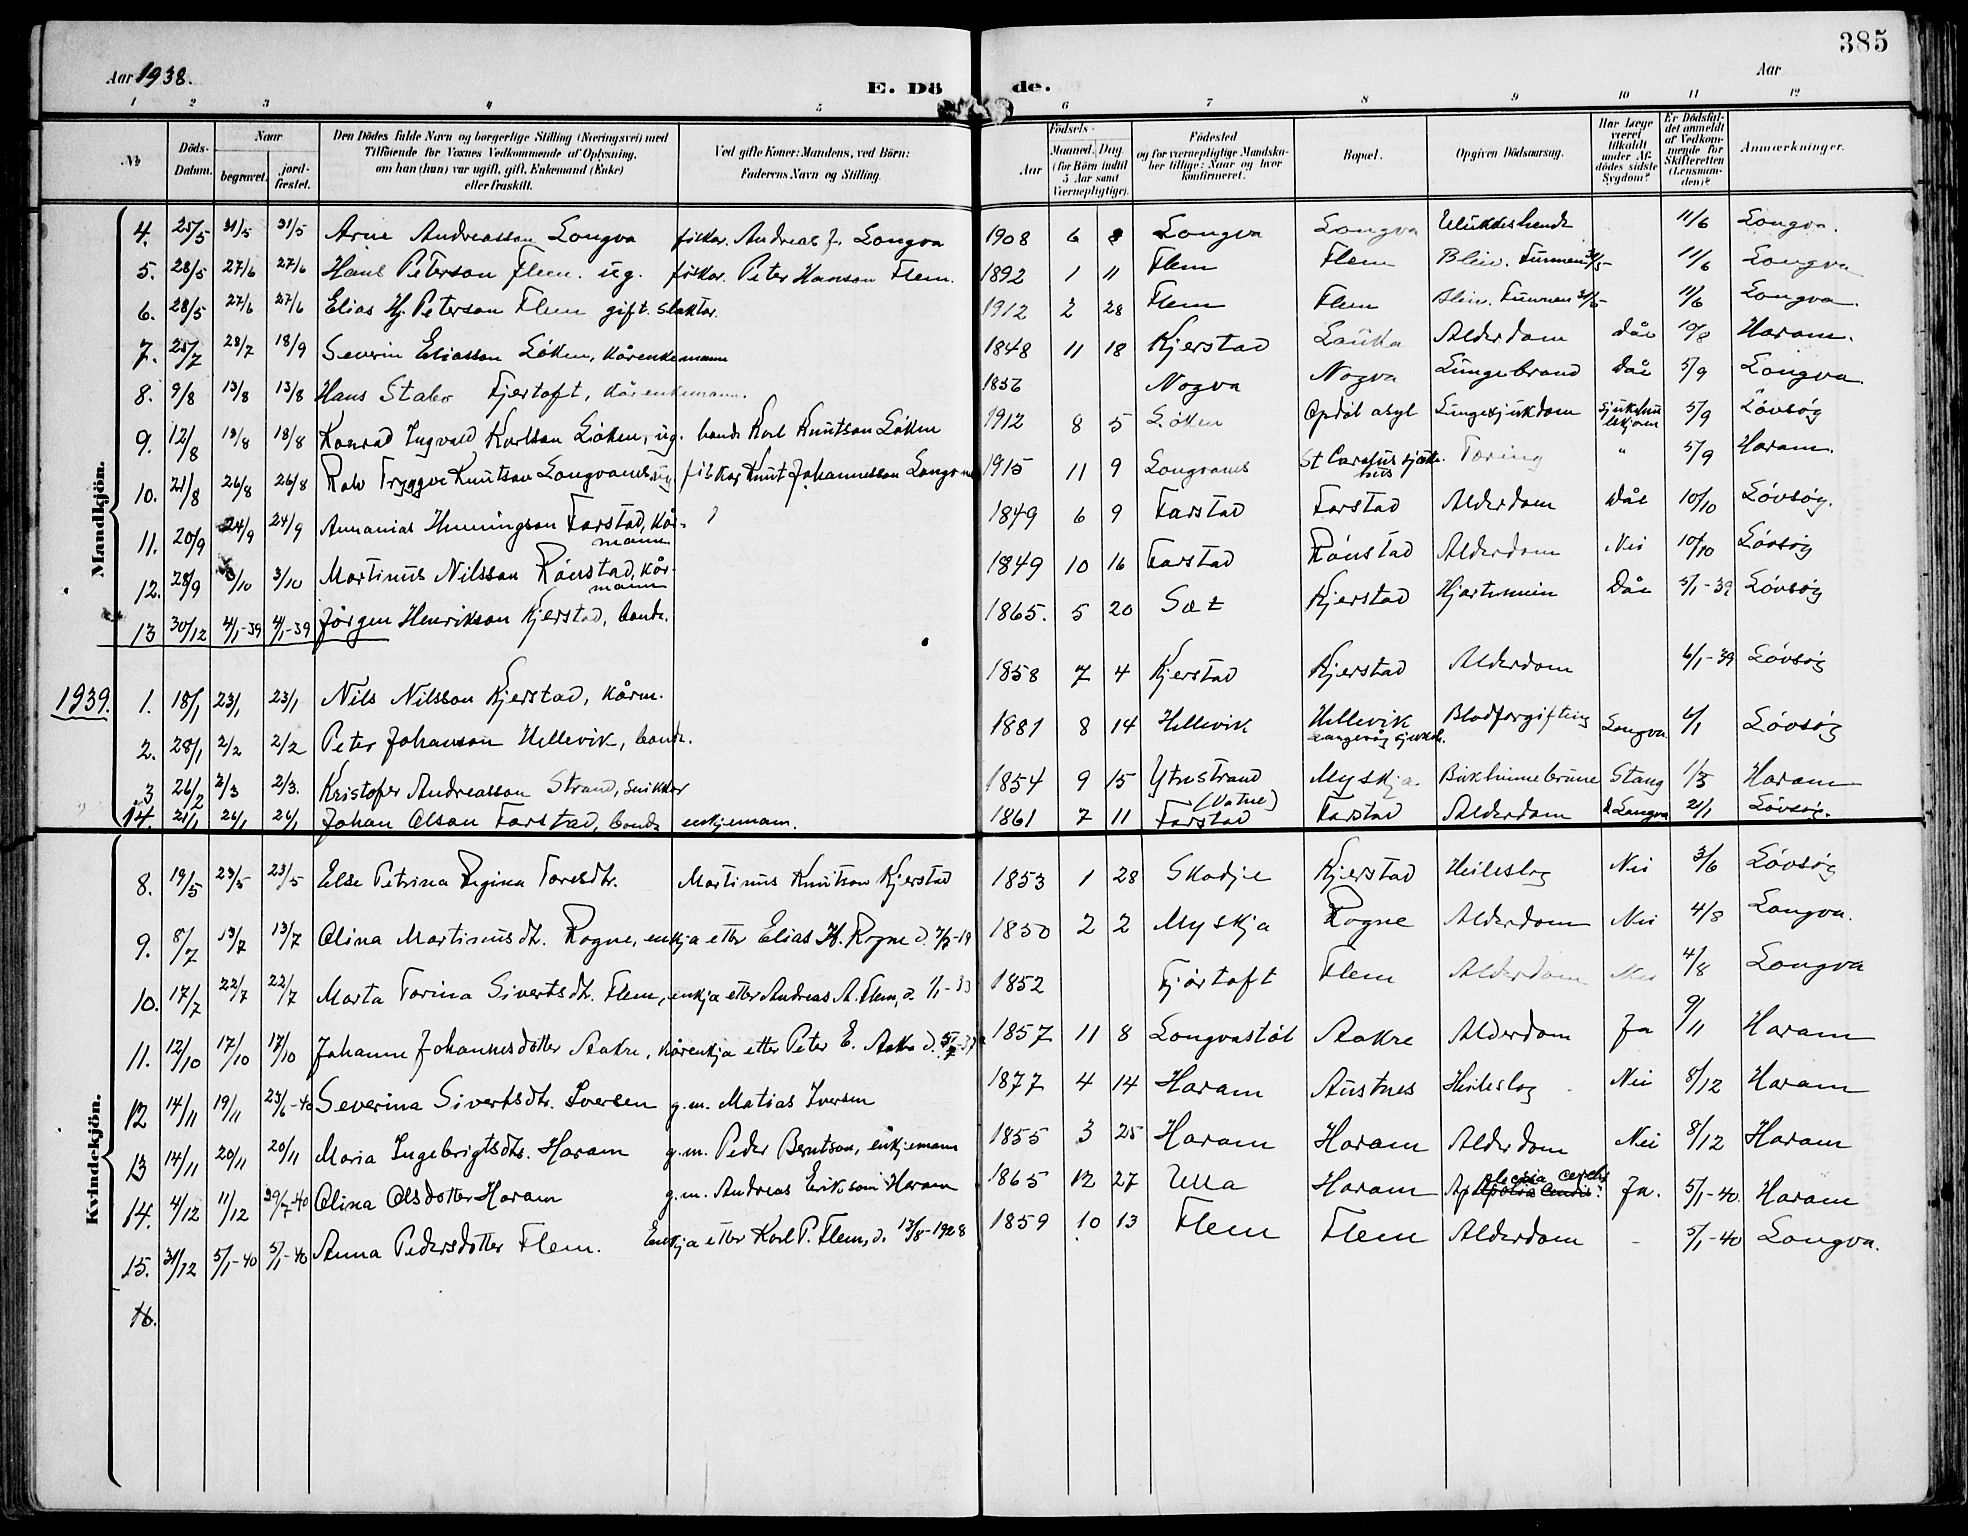 385
Aar 1938.
Aar
E. Dö de.
1 2 3 4 5 6 7 8 9 10 11 12
No
Döds-Datum.
Naar
begravet.
jord-fæstet.
Den Dödes fulde Navn og borgerlige Stilling (Næringsvei) med
Tilföiende for Voxnes Vedkommende af Oplysning,
om han (hun) var ugift, gift, Enkemand (Enke)
eller fraskilt.
Ved gifte Koner: Mandens, ved Börn:
Faderens Navn og Stilling.
Aar
Födsels-
Maaned. Dag
(for Börn indtil
5 Aar samt
Værnepligtige).
Födested
og for værnepligtige Mandska-
ber tillige: Naar og hvor
konfirmeret.
Bopæl.
Opgiven Dödsaarsag.
Har Læge
været
tilkaldt
under Af-
dödes sidste
Sygdom?
Er Dödsfal-
det anmeldt
af Vedkom-
mende for
Skifteretten
(Lensman-
den)?
Anmærkninger.
Mandkjön.
4. 25/5 31/5 31/5 Arne Andreasson Longva fiskar. Andreas J. Longva 1908 6 8 Longva Longva Ulukkeshende 11/6 Longva.
5. 28/5 27/6 27/6 Hans Peterson Flem. ug. fiskar. Peter Hanson Flem. 1892 1 11 Flem Flem Bleiv. Funnen 31/5 11/6 Longva
6. 28/5 27/6 27/6 Elias Hj. Peterson Flem gift. slaktar. 1912 2 28 Flem Flem Bleiv. Funnen 31/5 11/6 Longva.
7. 25/7 28/7 18/9 Severin Eliasson Löken, kårenkemann 1848 11 18 Kjerstad Lauka Alderdom Dåe 10/8 Haram.
8. 9/8 13/8 13/8 Hans Stabo Fjertoft, kårenkemann. 1856 Nogva Nogva Lungebrand Dåe 5/9 Longva.
9. 12/8 18/8 18/8 Konrad Ingvald Karlson Löken, ug. bonde Karl Knutson Löken 1912 8 5 Löken Opdöl asyl Lungesjukdom 5/9 Lövsög
10. 21/8 26/8 26/8 Rolv Tryggve Knutson Longvanes ug fiskar Knut Johannesson Longvanes 1915 11 9 Longvanes Tæring " 5/9 Haram.
11. 20/9 24/9 24/9 Annanias Henningson Farstad, kår-
mann 1849 6 9 Farstad Farstad Alderdom Dåe 10/10 Lövsög.
12. 28/9 3/10 3/10 Martinus Nilsson Rönstad, kår-
mann 1849 10 16 Farstad Rönstad Alderdom Nei 10/10 Lövsög
13 30/12 4/1-39 4/1-39 Jörgen Henrikson Kjerstad, bonde. 1865. 5 20 Sæt Kjerstad Dåe 5/1-39 Lövsög
1939.
1. 18/1 23/1 23/1 Nils Nilsson Kjerstad, kårm. 1858 7 4 Kjerstad Kjerstad Alderdom 6/1-39 Lövsög
2. 28/1 2/2 2/2 Peter Johanson Hellevik, bonde. 1881 8 14 Hellevik Hellevik Blodforgifting Longva 6/1 Lövsög
3 26/2 2/3 2/3. Kristofer Andreasson Strand, snikker 1854 9 15 Ytrestrand (Vatne) Myskja Stang 1/3 Haram
14. 21/1 26/1 26/1 Johan Olson Farstad, bonde enkjemann. 1861 7 11 Farstad Farstad Alderdom d Longva 21/1 Lövsög.
Kvindekjön.
8. 19/5 23/5 23/5 Else Petrina Regina Toresdtr. Martinus Knutson Kjerstad 1853 1 28 Skodje Kjerstad Heileslag Nei 3/6 Lövsög
9. 8/7 13/7 13/7 Olina Martinusdtr. Rogne, enkja etter Elias H. Rogne 1850 2 2 Myskja Rogne Alderdom Nei 4/8 Longva.
10. 17/7 22/7 22/7 Marta Torina Sivertsdtr. Flem, enkja etter Andreas A. Flem, d. 1/1-33 1852 Fjörtoft Flem Alderdom Nei 4/8 Longva
11. 12/10 17/10 17/10 Johanne Johannesdotter Aakre, kårenkja etter Peter E. Aakre 1857 11 8 Longvastöl Aakre Alderdom Ja 9/11 Haram
12 14/11 19/11 23/6-40 Severina Sivertsdtr. Iversen g.m. Matias Iversen 1877 4 14 Haram Austnes Heileslag Nei 8/12 Haram
13 14/11 20/11 20/11 Maria Ingebrigtsdtr. Haram g.m. Peder Berntson, enkjemann 1855 3 25 Haram Haram Alderdom Nei 8/12 Haram
14. 4/12 11/12 29/7-40 Olina Olsdotter Haram g.m. Andreas Erikson Haram 1865 12 27 Ulla Haram Ja. 5/1-40 Haram
15. 31/12 5/1-40 5/1-40 Anna Pedersdotter Flem. Enkja etter Karl P. Flem, d. 13/8-1928 1859 10 13 Flem Flem Alderdom - 5/1-40 Longva.
16.